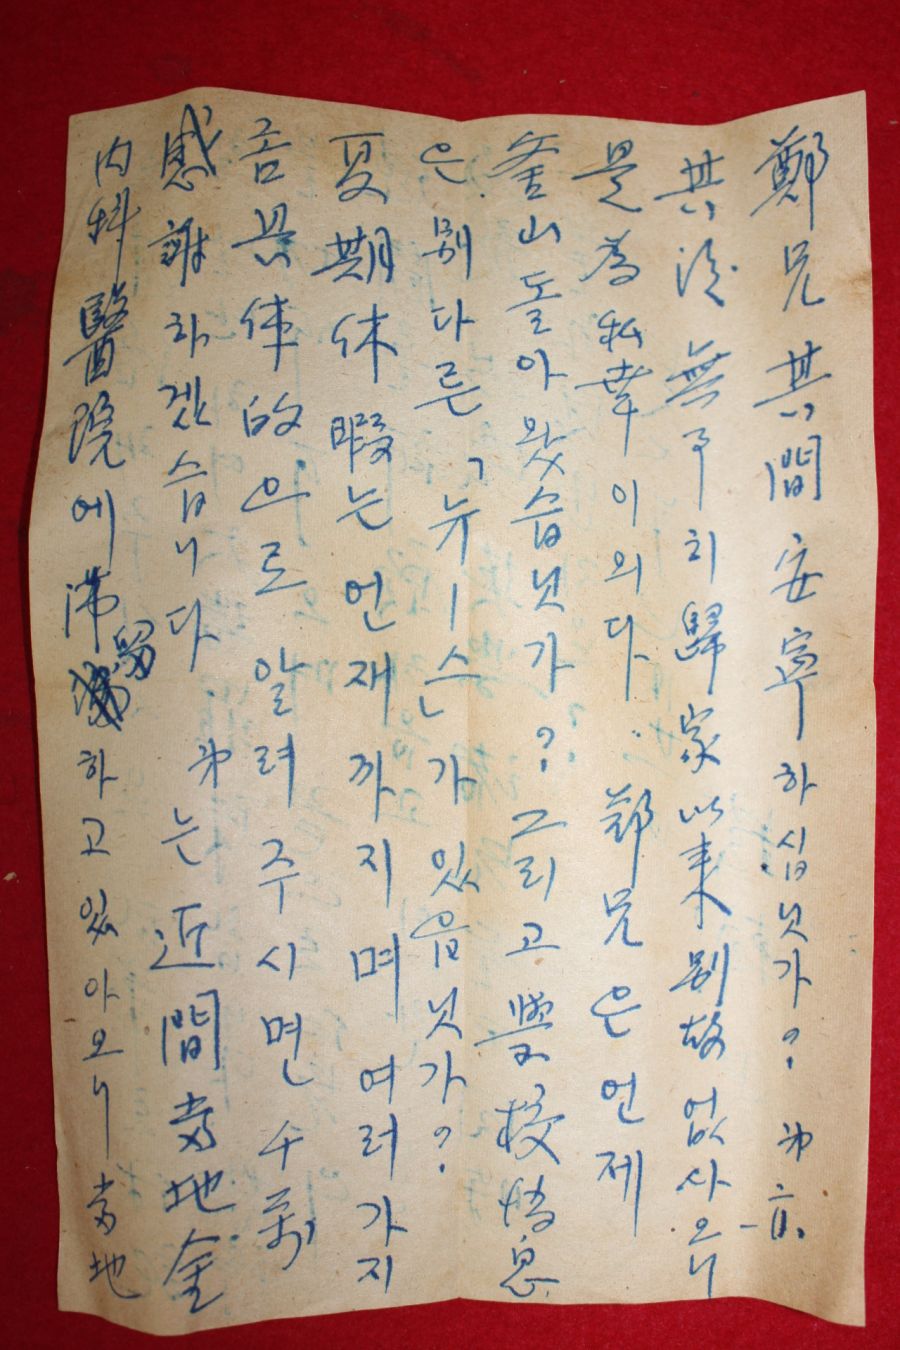 鄭兄 其間 安寧하십닛가? 弟亦
其後 無事히 歸家 以來 別故 없사오니
是爲私幸이외다. 鄭兄은 언제
釜山 돌아왔습닛가? 그리고 學校 消息
은 別다른 「뉴ー스」가 있읍닛가?
夏期休暇는 언재까지며 여러가지
좀 具体的으로 알려주시면
感謝하겠습니다. 弟는 近間 當地 金
内科醫院에 滞留하고 있아오니 當地